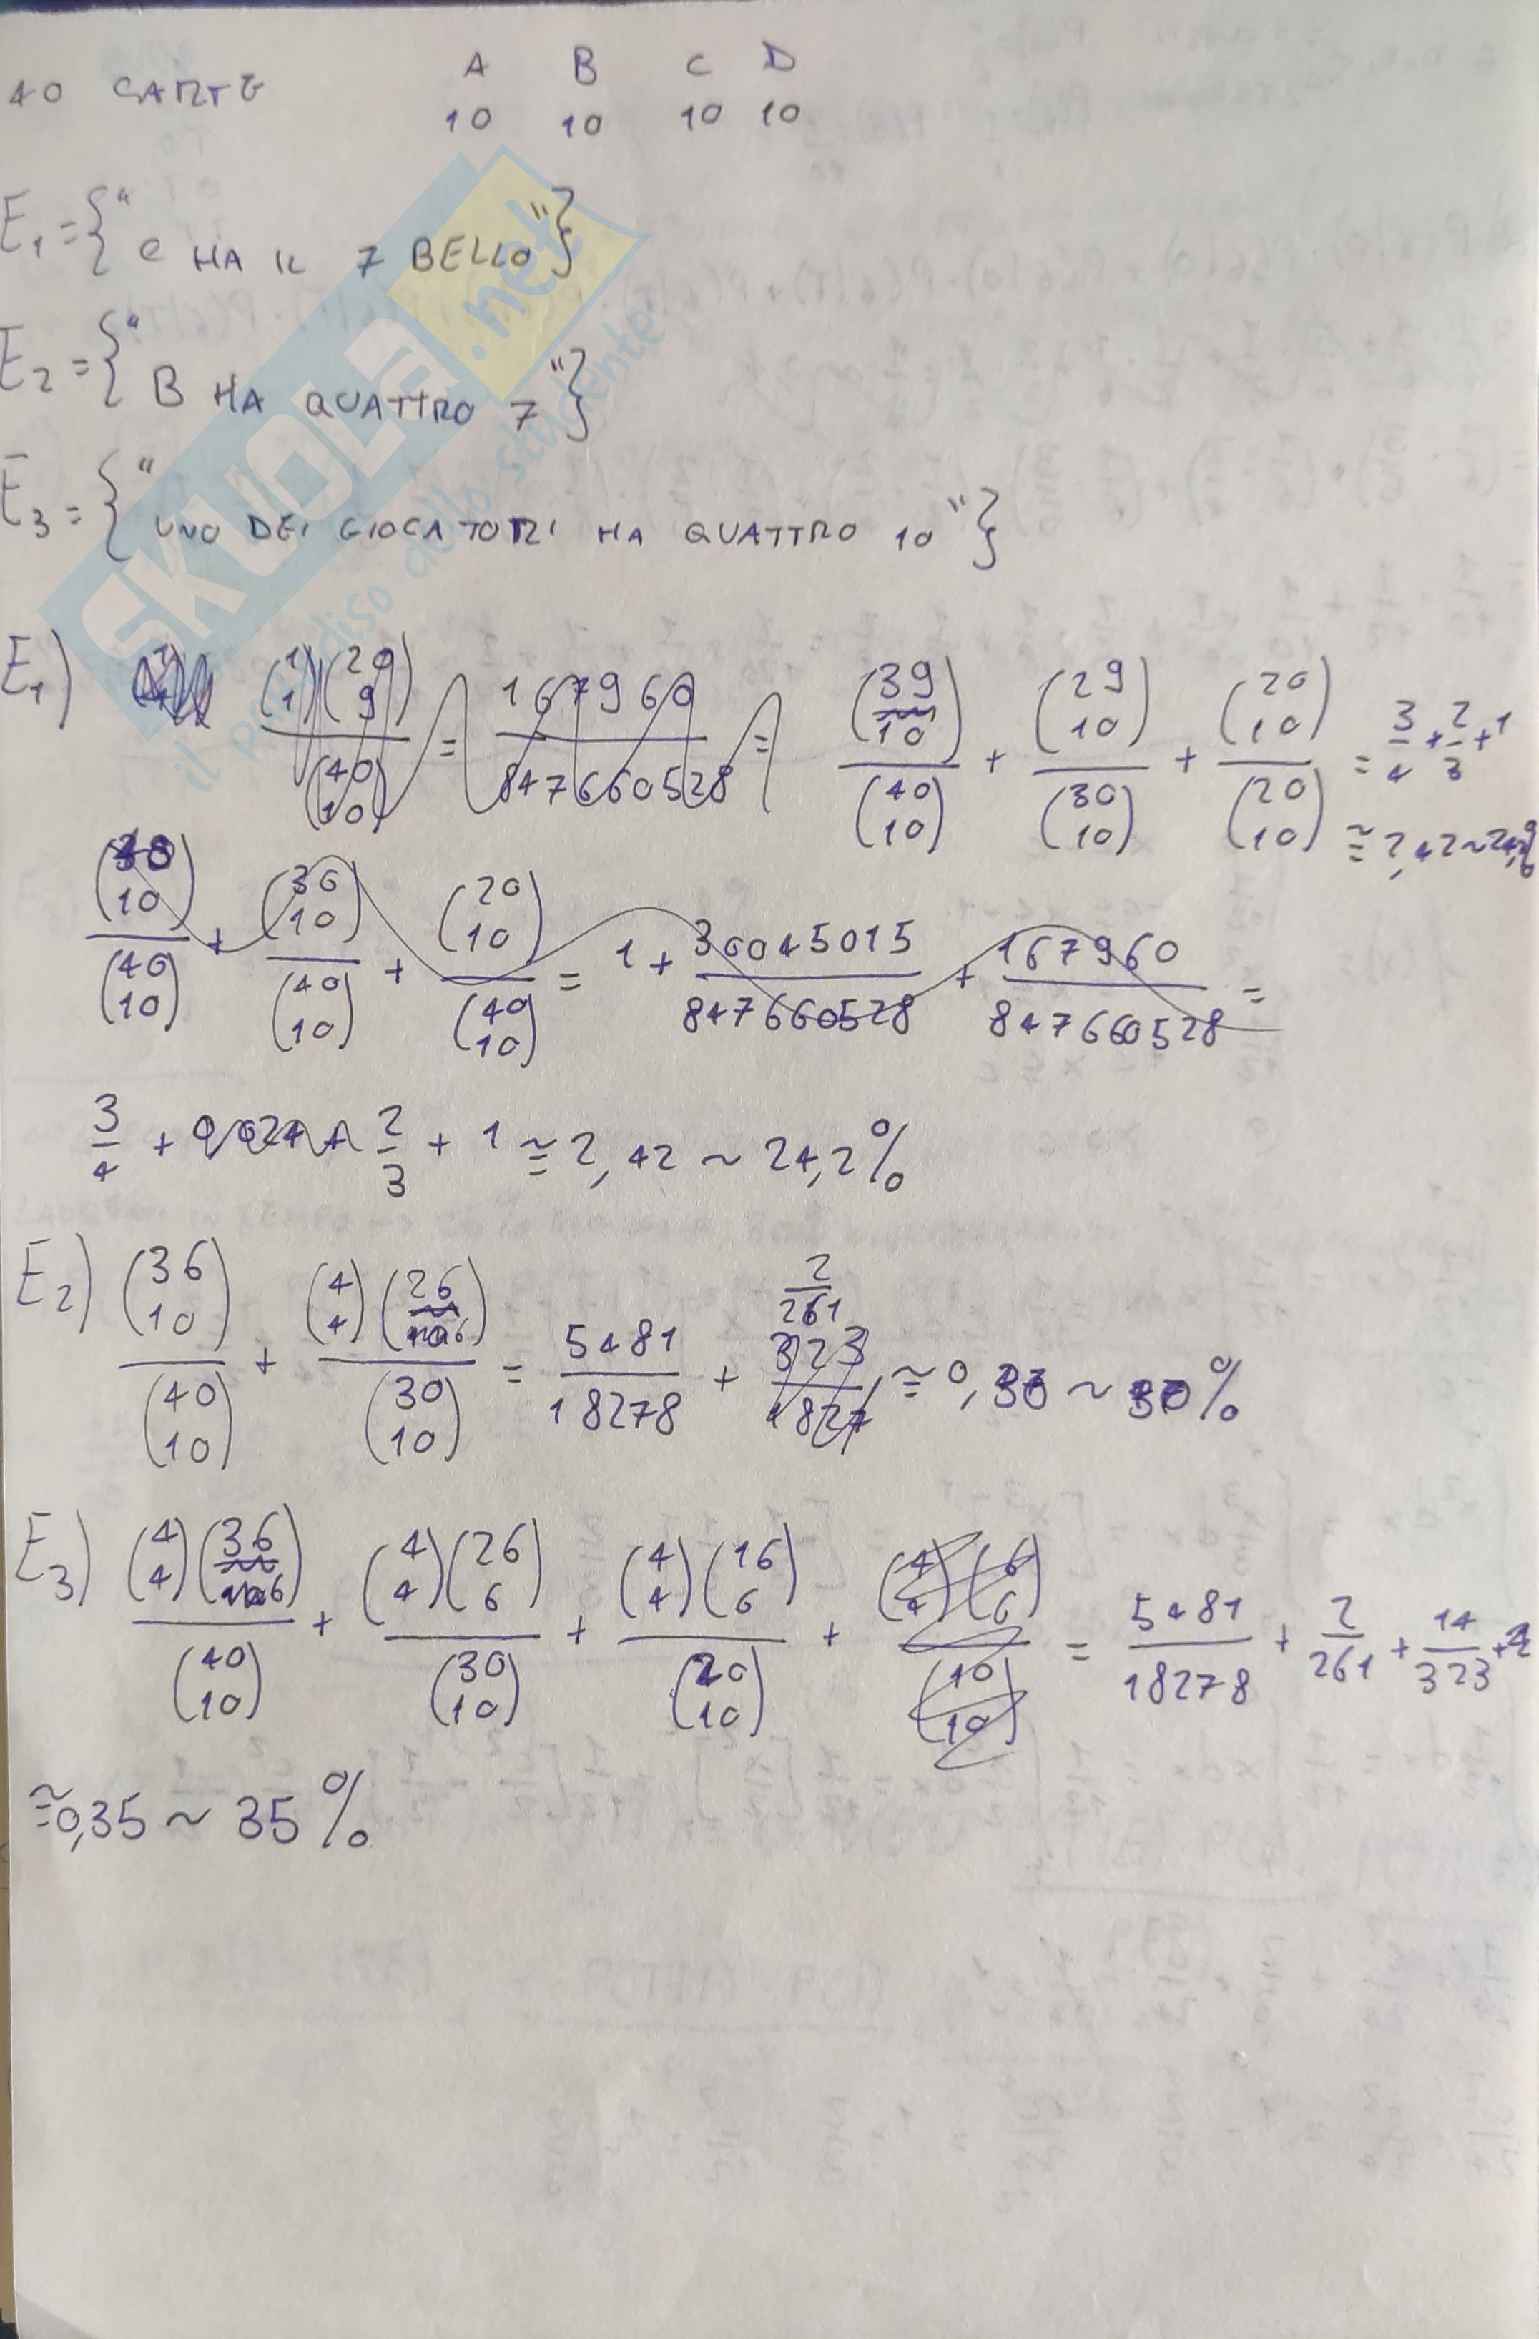 40 CARTE A B C D
10 10 10 10
E1 = {" C HA IL 7 BELLO "}
E2 = {" B HA QUATTRO 7 "}
E3 = {" UNO DEI GIOCATORI HA QUATTRO 10 "}
SKUOLA.net
il paradiso dello studente
E1) (1 1)(29 9) / (40 10) = 167960 / 847660528 = (39 10) / (40 10) + (29 10) / (30 10) + (20 10) / (20 10) = 3/4 + 2/3 + 1
≅ 2,42 ~
(10) / (40 10) + (30 10) / (40 10) + (20 10) / (40 10) = 1 + 36045015 / 847660528 + 167960 / 847660528 =
3/4 + 2/3 + 1 ≅ 2,42 ~ 24,2%
E2) (36 10) / (40 10) + (4 4)(26 6) / (30 10) = 5481 / 18278 + 2/261 323/1827 ≅ 0,30 ~ 30%
E3) (4 4)(36 6) / (40 10) + (4 4)(26 6) / (30 10) + (4 4)(16 6) / (20 10) + (4 4)(6 6) / (10 10) = 5481 / 18278 + 2/261 + 14/323
≅ 0,35 ~ 35%